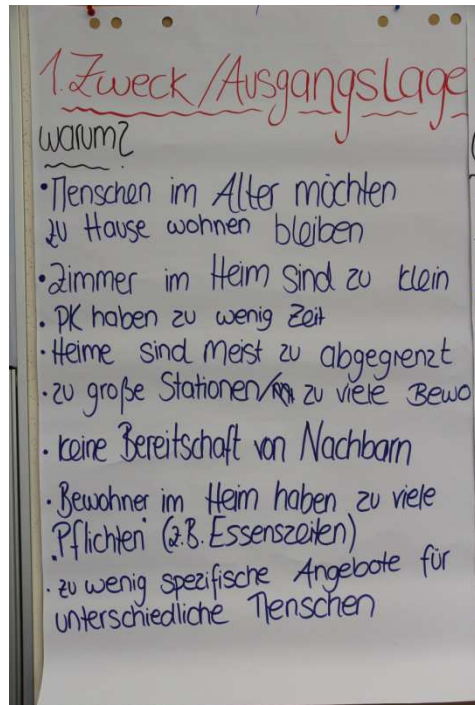 1. Zweck / Ausgangslage
warum?
• Menschen im Alter möchten
zu Hause wohnen bleiben
• Zimmer im Heim sind zu klein
• PK haben zu wenig Zeit
• Heime sind meist zu abgegrenzt
• zu große Stationen / zu viele Bewo
• keine Bereitschaft von Nachbarn
• Bewohner im Heim haben zu viele
"Pflichten" (z.B. Essenszeiten)
• zu wenig spezifische Angebote für
unterschiedliche Menschen